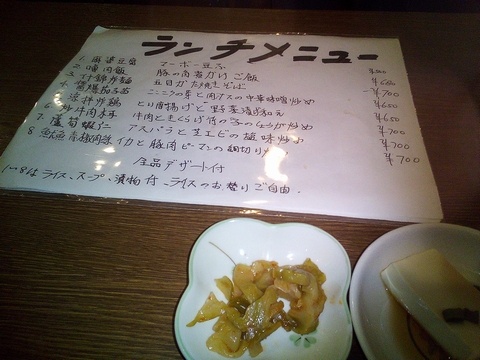 ランチメニュー
1. 麻婆豆腐 マーボー豆ふ
2. 肉飯 豚の角煮かけご飯 ¥650
3. 什錦炒麺 五目かた焼きそば ¥700
4. 醤爆茄子 ニンニクの芽と肉ナスの中華味噌炒め ¥650
5. 涼拌炸鶏 とり唐揚げと野菜
6. 牛肉 牛肉ときくらげ 筍のしょうが炒め ¥700
7. 蘆筍蝦仁 アスパラと芝エビの塩味炒め ¥700
8. 魷魚青椒肉絲 イカと豚肉ピーマンの細切り炒め ¥700
全品デザート付
ライス、スープ、漬物付、ライスのお替りご自由。